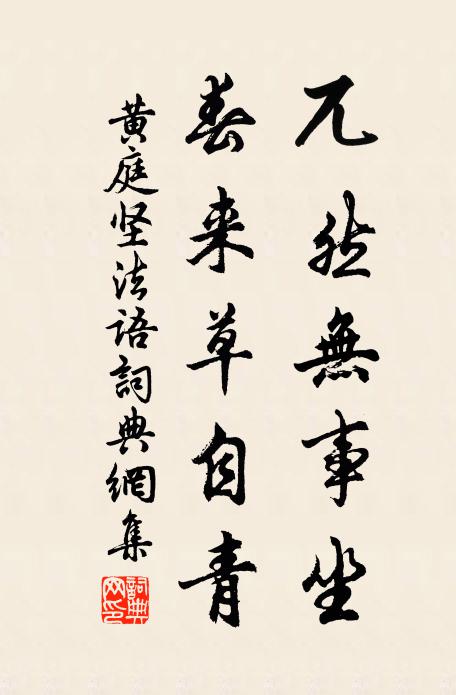 兀然無事坐
春来草自青
黄庭坚法語詞典網集
詞典網印